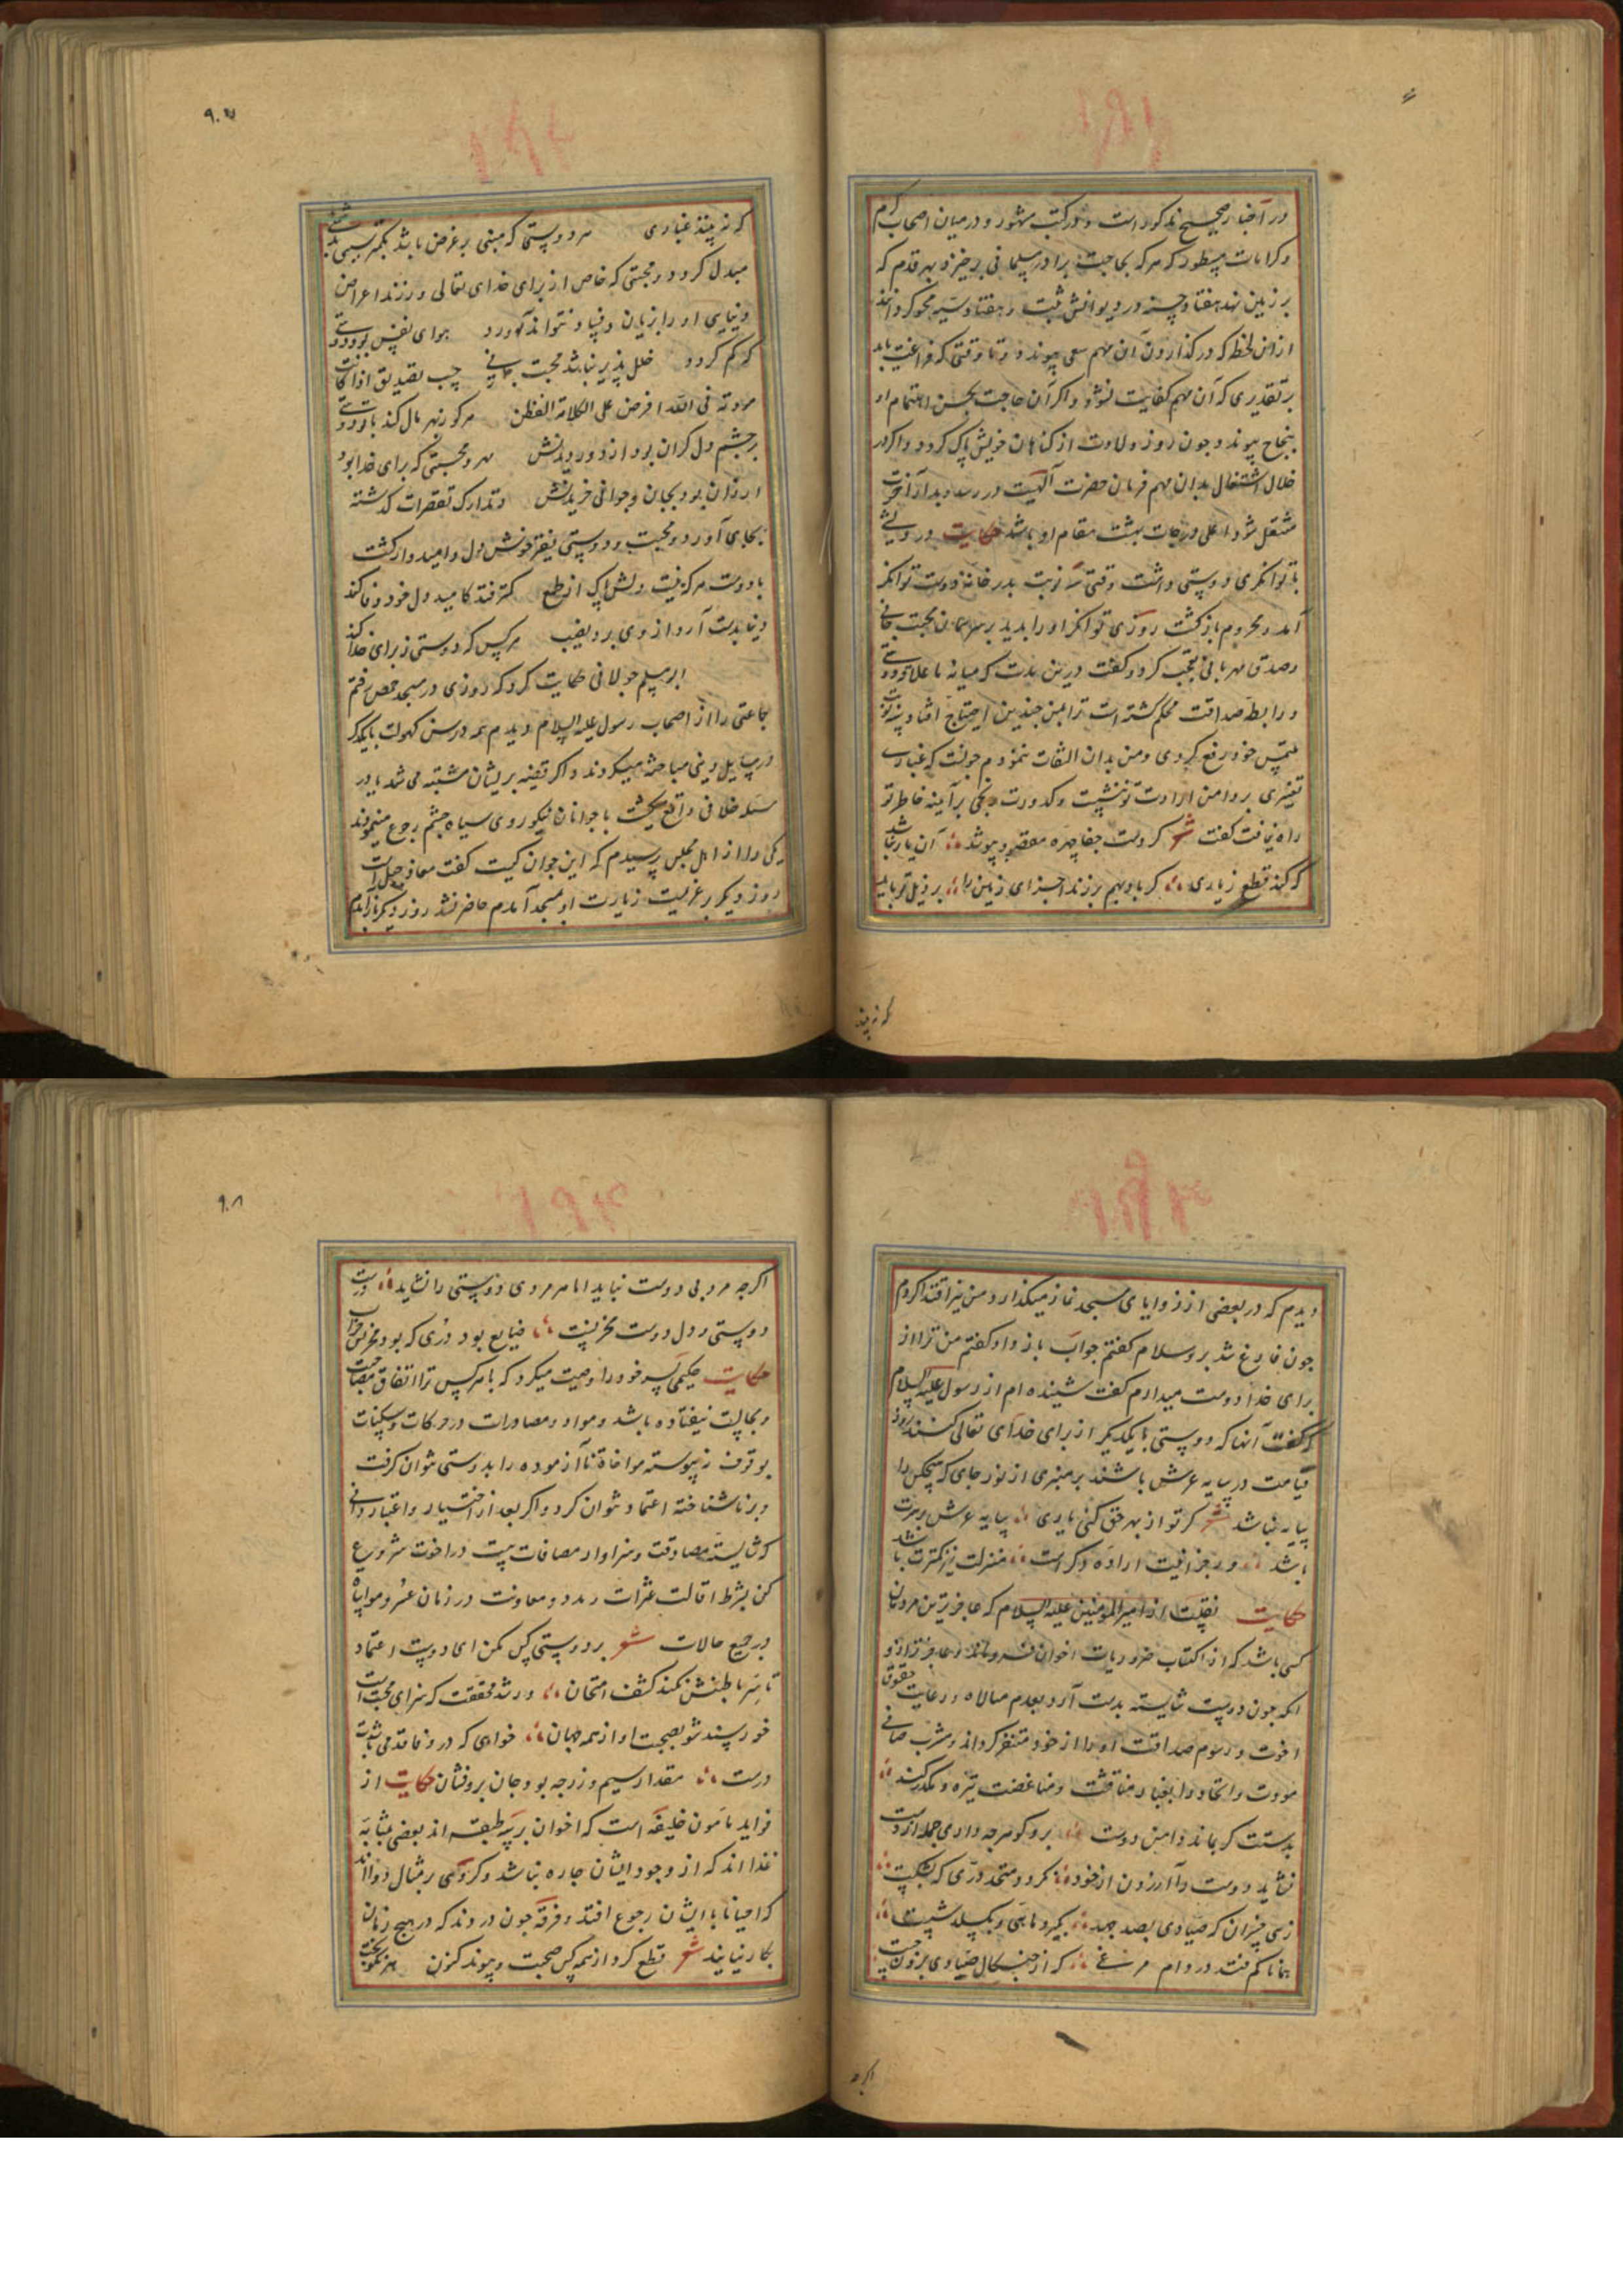 در اخبار صحیح مذکور است و در کتب مشهور و در میان اصحاب کرم
و کرامات مسطور که هر که بحاجت برادر مسلمانی برخیزد بهر قدم که
بر زمین نهد هفتاد حسنه در دیوانش ثبت و هفتاد سیه محو کردانند
از ان لحظه که در کذاردن آن مهم سعی پیوندد تا وقتی که فراغت یابد
بر تقدیری که آن مهم کفایت نشود و اکر آن حاجت بحسن اهتمام او
بنجاح پیوندد چون روز ولادت از کناهان خویش پاک کردد و اکر در
خلال اشتغال بدان مهم فرمان حضرت آلهیت در رسد و بدار آخرت
منتقل شود اعلی درجات بهشت مقام او باشد حکایت درویشی
با توانکری دوستی داشت وقتی سه نوبت بدر خانه دوست توانکر
آمد و محروم بازکشت روزی توانکر او را بدید بر همان محبت جانی
و صدق مهربانی تعجب کرد و کفت درین مدت که میانه ما علاقه دوستی
و رابطه صداقت محکم کشته است ترا بمن چندین احتیاج افتاد و سه نوبت
ملتمس خود رفع کردی و من بدان التفات ننمودم چونست که غباری
تغیری بر دامن ارادت تو ننشست و کدورت رنجی بر آینه خاطر تو
راه نیافت کفت شعر کر دوست جفا چهره مقصود بپوشد آن یار نباشد
که کند قطع ز یاری کر باد بهم برزند اجزای زمین را بر ذیل
که نه بیند
۹۰۷
که نه بیند غباری هر دوستی که مبنی بر غرض باشد بکمتر سببی
مبدل کردد و محبتی که خاص از برای خدای تعالی ورزند اعراض
دنیایی او را زیان و فساد نتواند آورد هوای نفس بود دوستی
که کم کردد خلل پذیر نباشد محبت جانی
مودته فی الله افرض علی هر که زبهر مال کند با تو دوستی
بر چشم دل کران بود از دور دیدنش مهر و محبتی که برای خدا بود
ارزان بود بجان و جوانی خریدنش و تدارک تقصیرات کذشته
بجای آورد و محبت و دوستی بیفزود خوش دل و امیدوار کشت
با دوست هر که نیست دلش پاک از طمع کمتر فتد کامید دل خود وفا کند
دنیا بدست آرد از وی برد نصیب هر کس که دوستی ز برای خدا کند
ابو مسلم خولانی حکایت کرد که روزی در مسجد حمص رفتم
جماعتی را از اصحاب رسول علیه السلام دیدم همه در سن کهولت با یکدکر
در مسایل دینی مباحثه میکردند و اکر قضیه بریشان مشتبه می شد یا در
مسئله خلافی واقع میکشت با جوانان نیکو روی سیاه چشم رجوع مینمودند
یکی را از اهل مجلس پرسیدم که این جوان کیست کفت معاذ جبل است
روز دیکر بر عزیمت زیارت او بمسجد آمدم حاضر نشد روز دیکر باز آمدم
دیدم که در بعضی از زوایای مسجد نماز میکذارد من نیز اقتدا کردم
چون فارغ شد برو سلام کفتم جواب باز داد کفتم من ترا از
برای خدا دوست میدارم کفت شنیده ام از رسول علیه السلام
که کفت آنها که دوستی با یکدیکر از برای خدای تعالی کنند روز
قیامت در سایه عرش باشند بر منبری از نور جای که هیچکس را
سایه نباشد شعر کر تو از بهر حق کنی یاری سایه عرش برسرت
باشد ور جز اینت اراده دکر است منزلت نیز کمترت باشد
حکایت نقلست از امیر المومنین علیه السلام که عاجزترین مردمان
کسی باشد که از اکتساب ضروریات اخوان فرو ماند و عاجزتر ازو
انکه چون دوست شایسته بدست آرد بعدم مبالاه و رعایت حقوق
اخوت و رسوم صداقت او را از خود متنفر کرداند و مشرب صافی
مودت و اتحاد را بغبار مناقشت و مباغضت تیره و مکدر کند
بدستت کر بماند دامن دوست برو کو هرچه داری جمله از دست
نشاید دوست را آزردن از خود نکردد متحد دری که بشکست
زهی خسران که صیادی بصد جهد بگیرد ماهی و بکسلد شست
همانا کم فتد در دام مرغی که از چنکال صیادی برون جست
اکرچه
۹۰۸
اکرچه مرد بی دوست نباید اما هر مردی دوستی را نشاید درست
دوستی و دل دوست مخزنیست ضایع بود دُری که بود مخزنش خراب
حکایت حکیمی پسر خود را وصیت میکرد که با هر کس ترا اتفاق مصاحبت
و مجالست نیفتاده باشد و موارد و مصادرات در حرکات و سکنات
بوقوف نپیوسته مواخاة ناآزموده را بدوستی نتوان کرفت
و بر ناشناخته اعتماد نتوان کرد و اکر بعد از اختیار و اعتبار دانی
که شایسته مصادقت و سزاوار مصافات است در اخوت شروع
کن بشرط اقالت عثرات و مدد و معاونت در زمان عسر و مواساه
در جمیع حالات شعر بر دوستی کس مکن ای دوست اعتماد
تا سر باطنش نکند کشف امتحان ور شد محققت که سزای محبت است
خورسند شو بصحبت او از همه جهان خواهی که در وفا قدمی باشدت
درست مقدار سیم و زر چه بود جان برو فشان حکایت از
فواید مامون خلیفه است که اخوان بر سه طبقه اند بعضی بمثابه
غذا اند که از وجود ایشان چاره نباشد و کروهی بر مثال دوا اند
که احیانا با ایشان رجوع افتد و فرقه چون دردند که در هیچ زمان
بکار نیایند شعر قطع کرد از همه کس صحبت و پیوند کنون